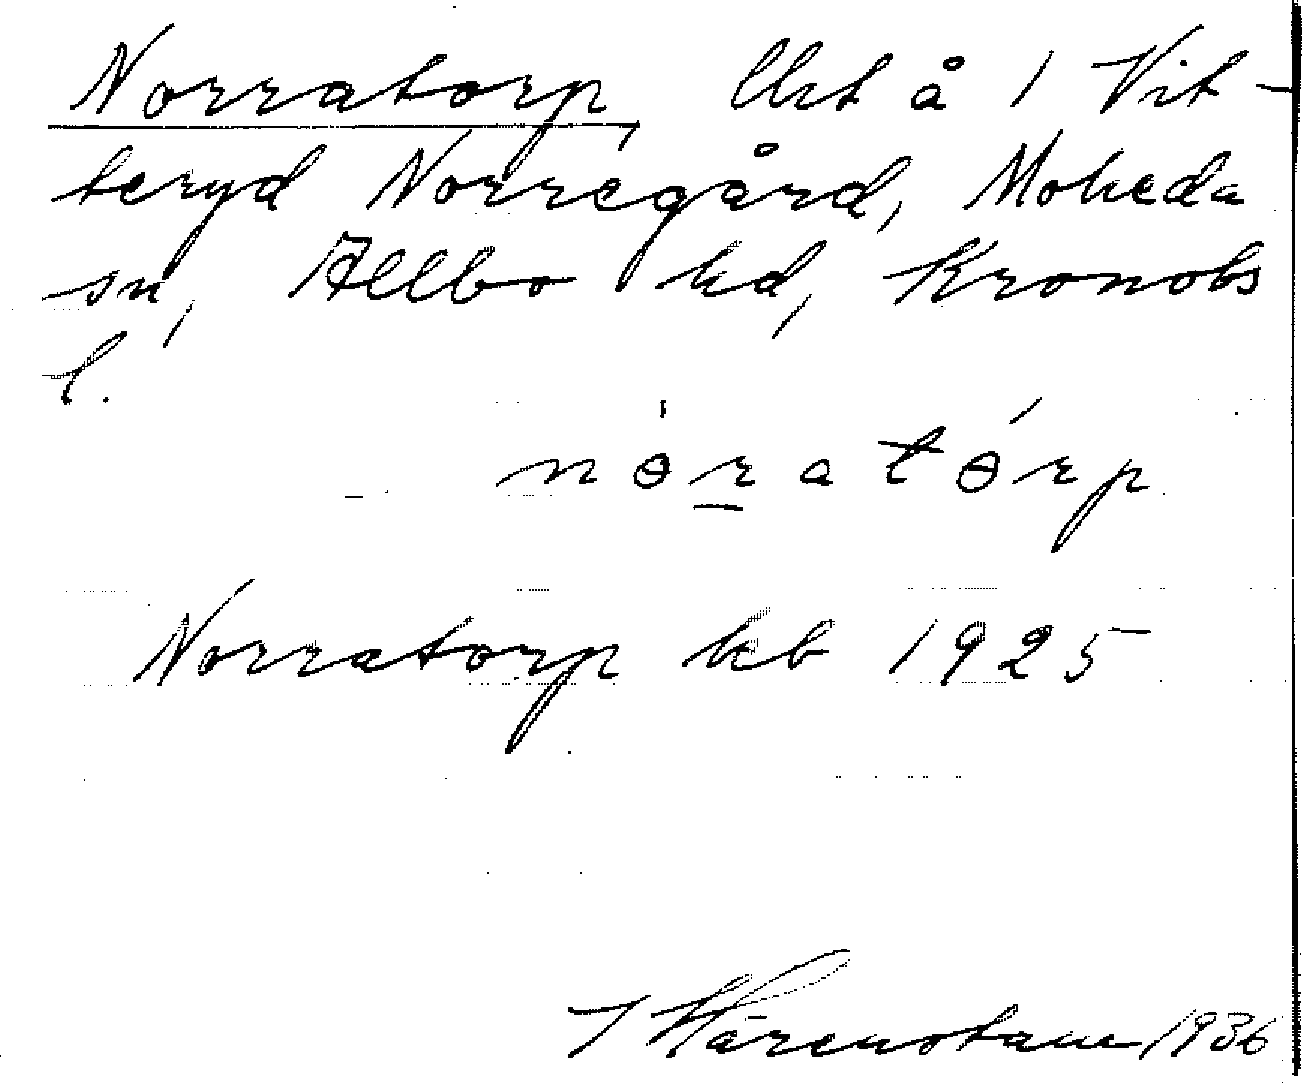 Norratorp, lht å 1 Vit-
teryd Norregård, Moheda
sn, Allbo hd, Kronobs
l.
nɵ́ratɵ́rp
Norratorp kb 1925
1936